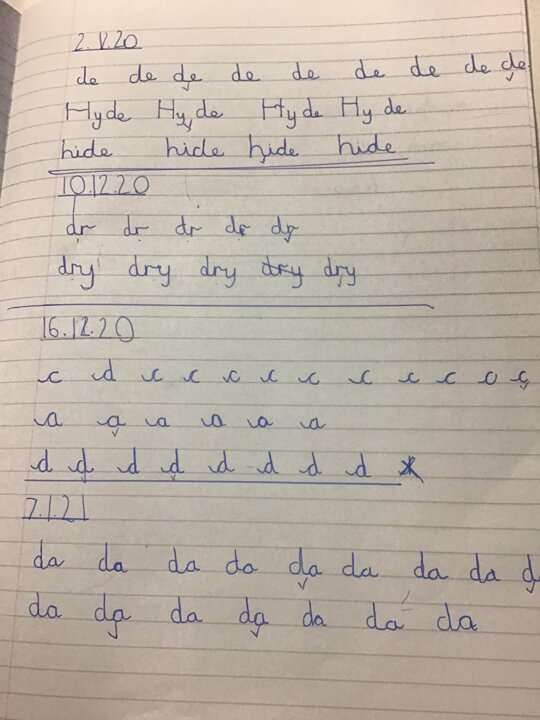 2.V.20
de de de de de de de de de
Hyde Hyde Hyde Hyde
hide hide hide hide
10.12.20
dr dr dr dr dr
dry dry dry dry dry
16.12.20
c d c c c c c c c c o c
a a a a a a
d d d d d d d d
7.1.21
da da da da da da da da
da da da da da da da